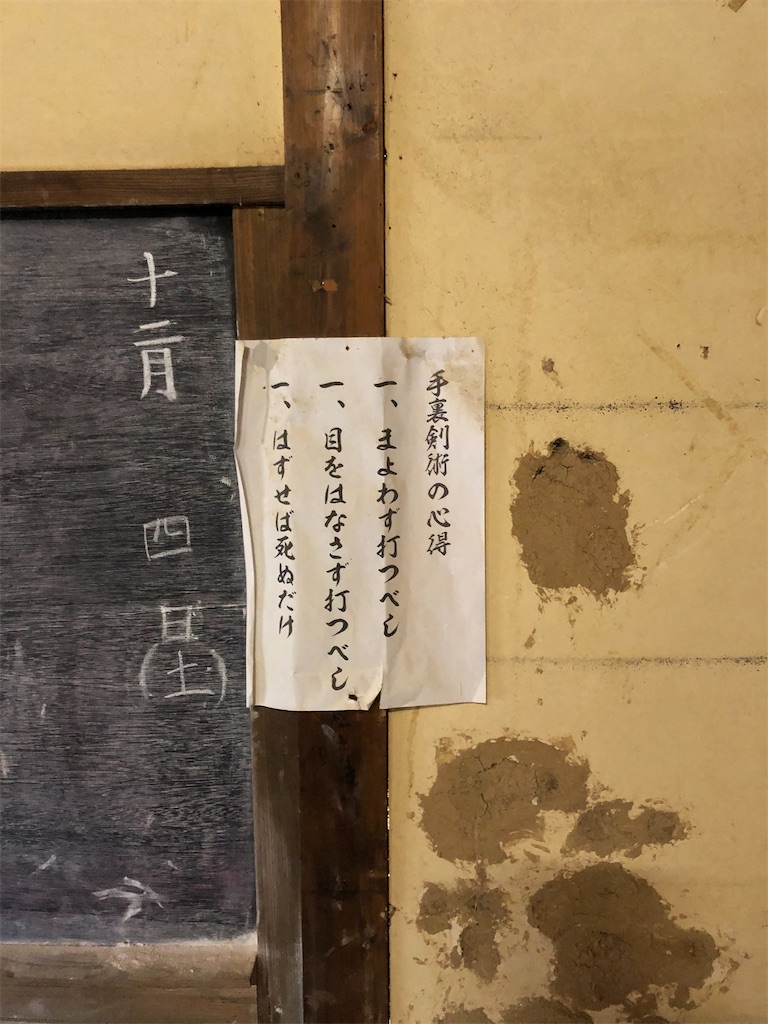 手裏剣術の心得
一、まよわず打つべし
一、目をはなさず打つべし
一、はずせば死ぬだけ
十二月
四
日
(土)
今